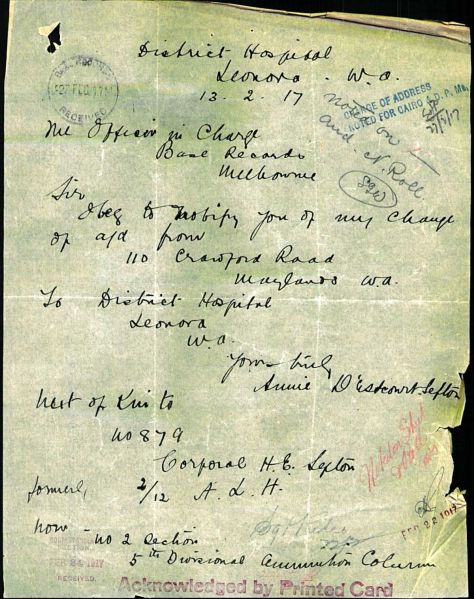 District Hospital
Leonora. W.a.
13.2.17
27 FEB 1917
RECEIVED
CHANGE OF ADDRESS
NOTED FOR CAIRO & D.P. Ms.
noted on
and N. Roll
The Officer in Charge
Base Records
Melbourne
Sir
I beg to notify you of my change
of a/d from
110 Crawford Road
Maylands Wa.
To District Hospital
Leonora
W.a.
Yours truly
Annie D'Estcourt Sefton
Next of Kin to
No 879
Corporal H.E. Sefton
formerly 2/12 A.L.H.
now - no 2 Section
5th Divisional Ammunition Column
FEB 28 1917
FEB 28 1917
RECEIVED.
Acknowledged by Printed Card